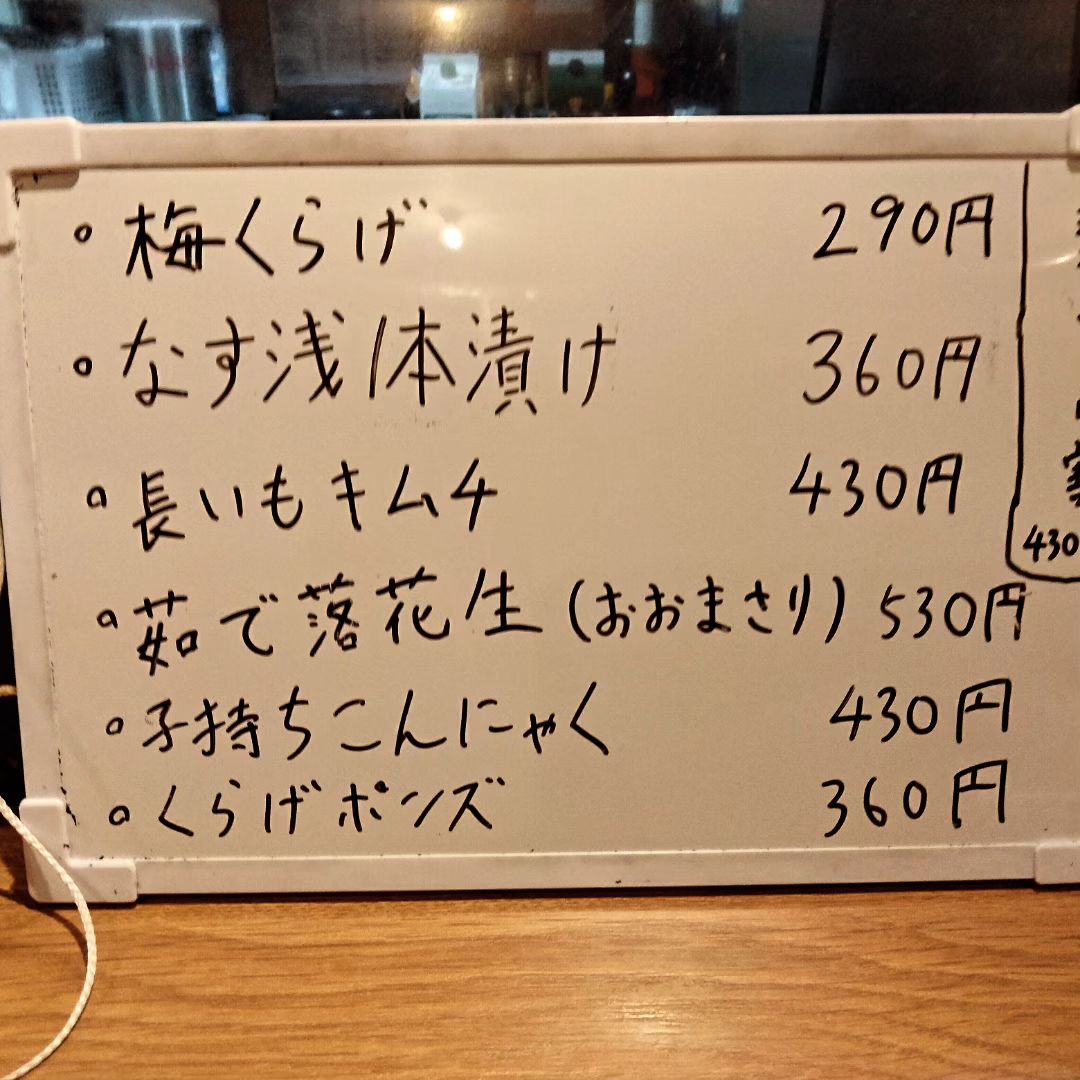 。梅くらげ 290円
。なす浅1本漬け 360円
。長いもキムチ 430円
。茹で落花生(おおまさり) 530円
。子持ちこんにゃく 430円
。くらげポンズ 360円
430